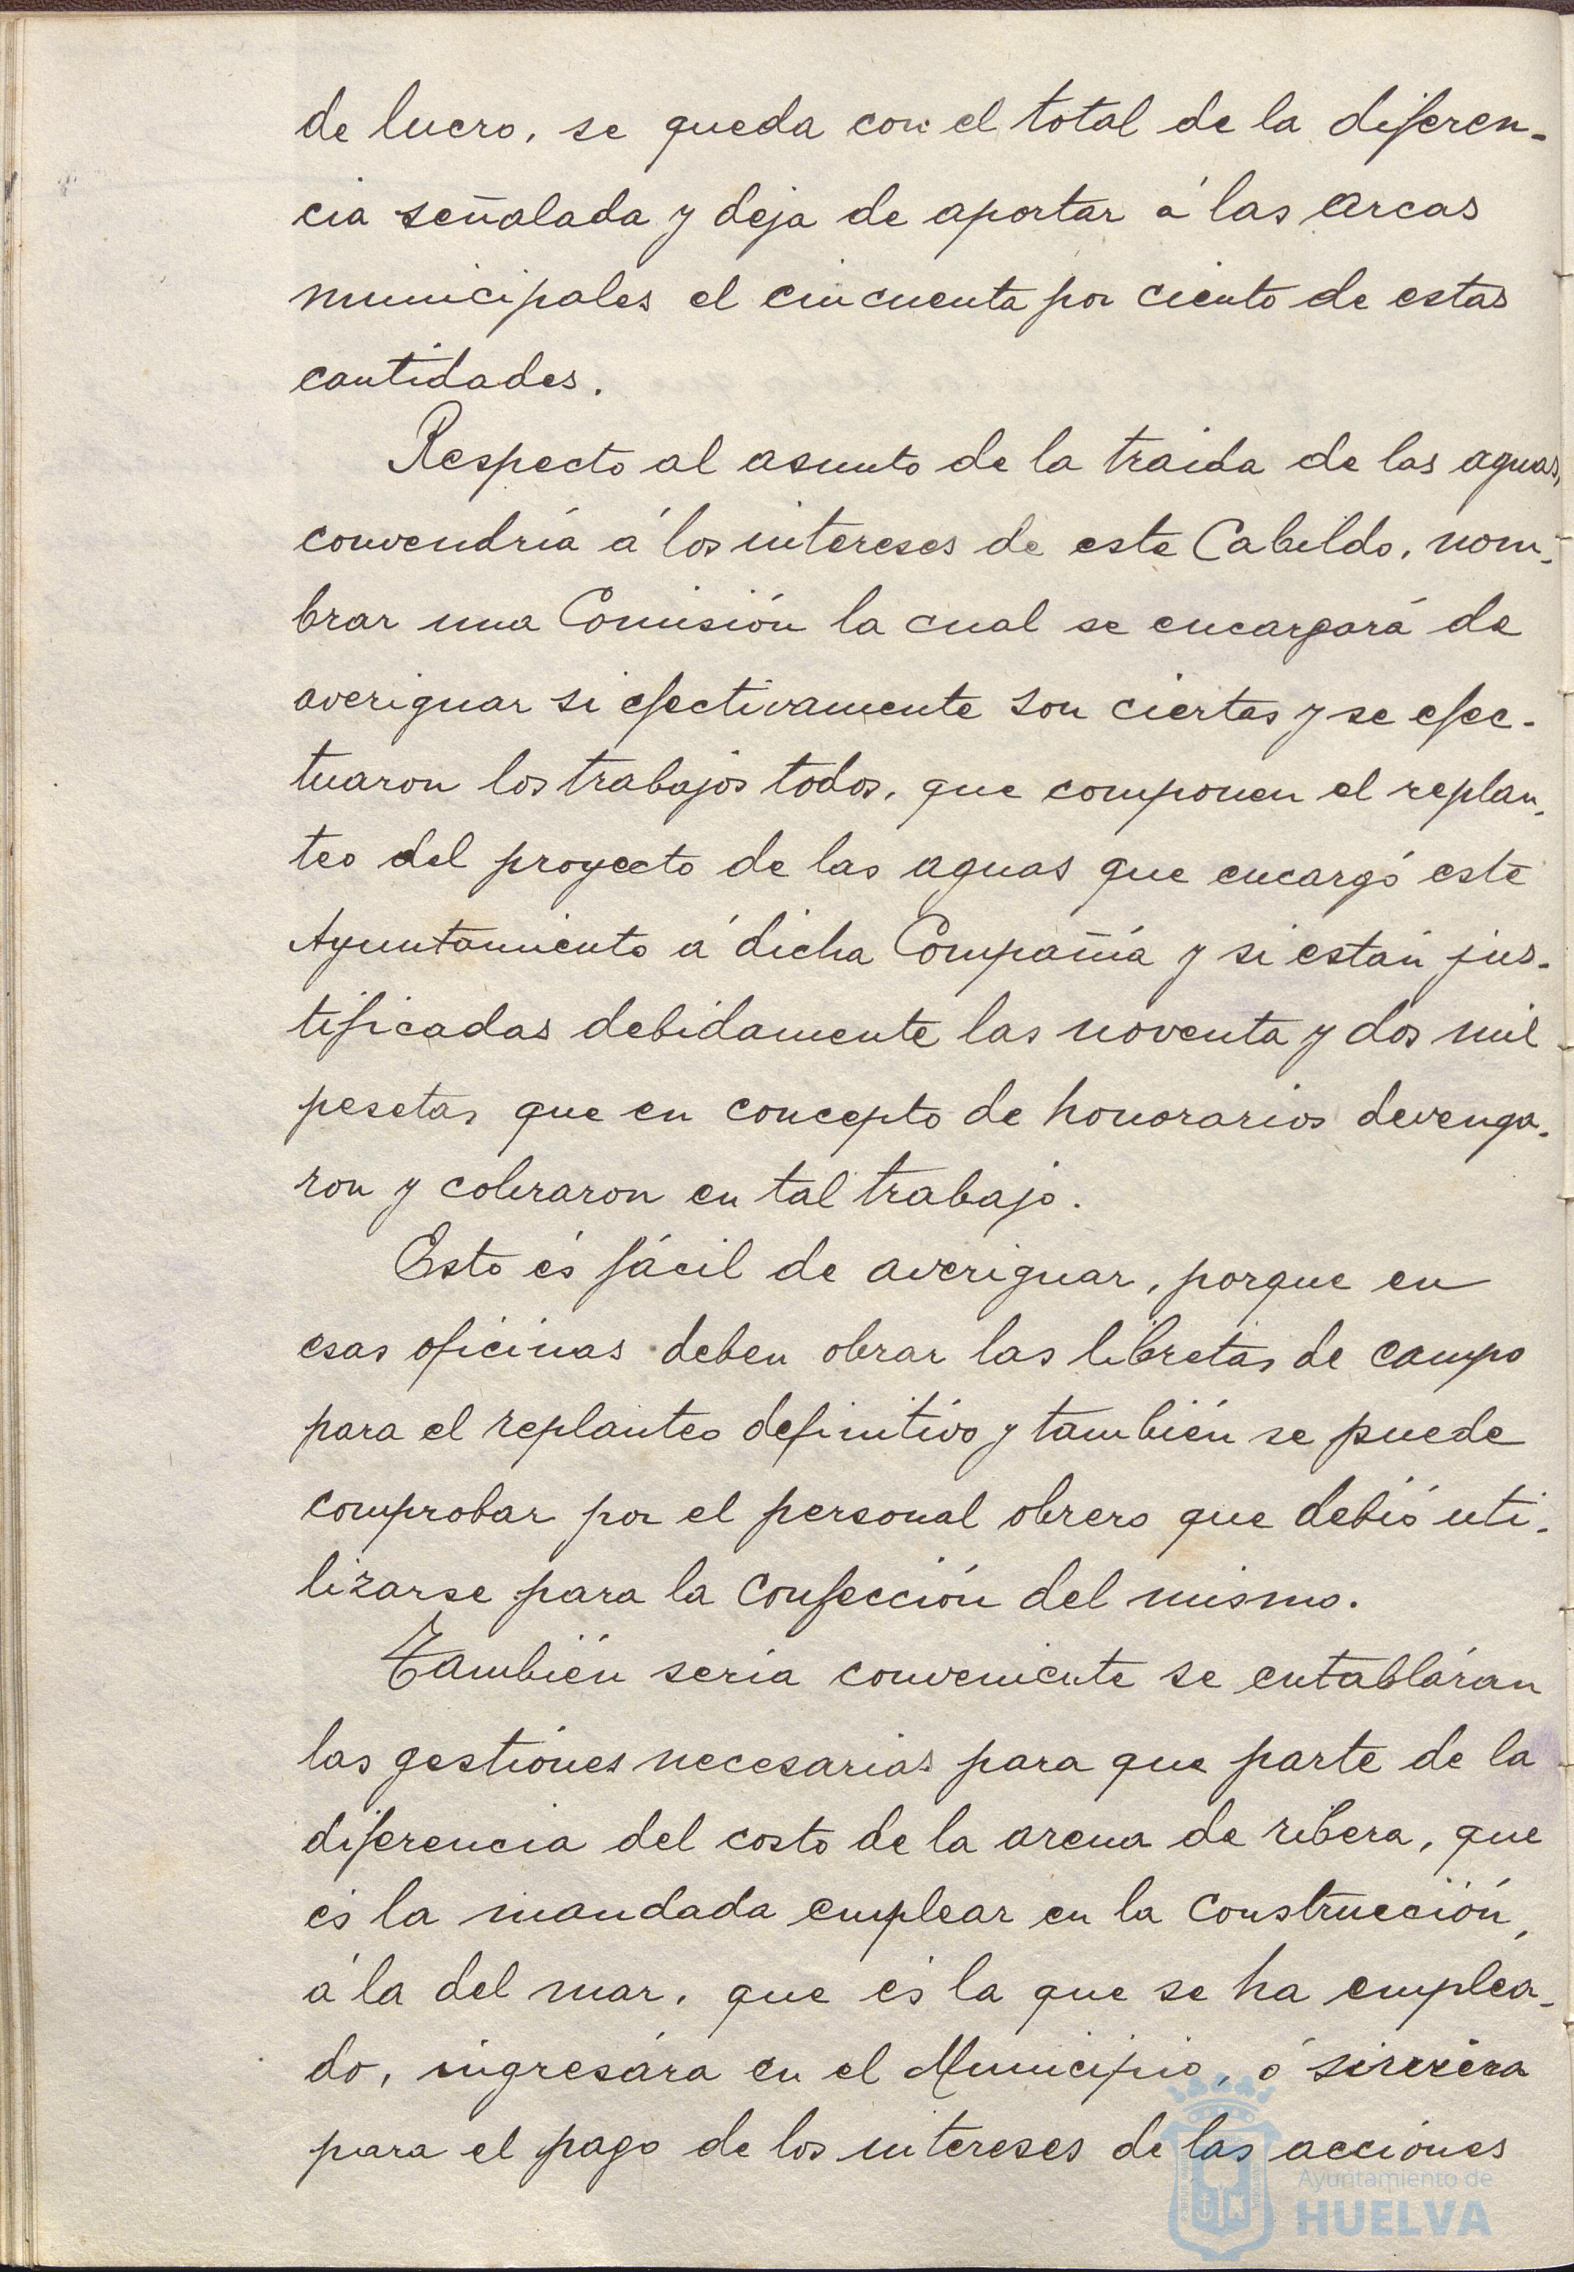 de lucro, se queda con el total de la diferen-
cia señalada y deja de aportar á las arcas
municipales el cincuenta por ciento de estas
cantidades.
Respecto al asunto de la traida de las aguas,
convendría á los intereses de este Cabildo, nom-
brar una Comisión la cual se encargará de
averiguar si efectivamente son ciertas y se efec-
tuaron los trabajos todos, que componen el replan-
teo del proyecto de las aguas que encargó este
Ayuntamiento á dicha Compañía y si están jus-
tificadas debidamente las noventa y dos mil
pesetas que en concepto de honorarios devenga-
ron y cobraron en tal trabajo.
Esto és fácil de averiguar, porque en
esas oficinas deben obrar las libretas de campo
para el replanteo definitivo y también se puede
comprobar por el personal obrero que debió uti-
lizarse para la confección del mismo.
También sería conveniente se entabláran
las gestiónes necesarias para que parte de la
diferencia del costo de la arena de ribera, que
és la mandada emplear en la construcción,
á la del mar, que és la que se ha emplea-
do, ingresára en el Municipio, ó sirviera
para el pago de los intereses de las acciónes
Ayuntamiento de
HUELVA